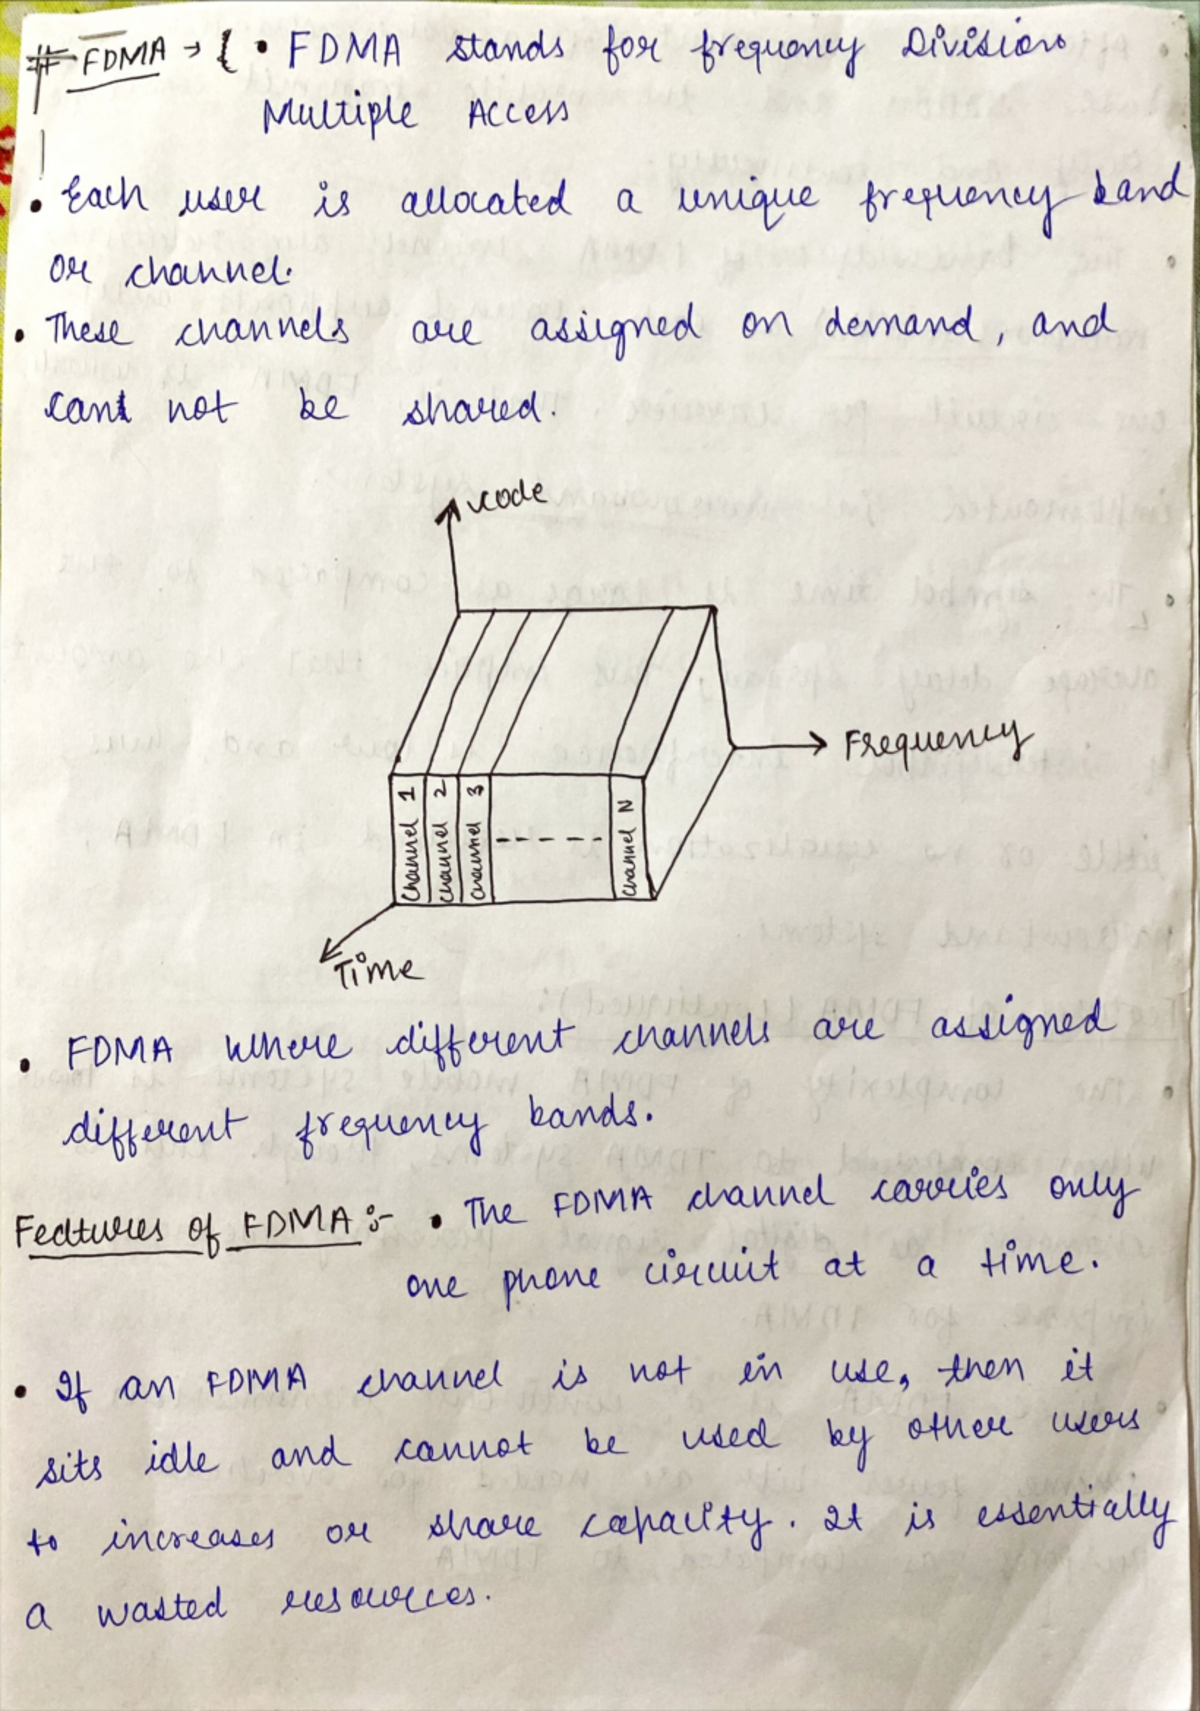 # FDMA → { • FDMA stands for frequency Division
Multiple Access
• Each user is allocated a unique frequency band
or channel.
• These channels are assigned on demand, and
cant not be shared.
code
Frequency
Channel 1
channel 2
channel 3
-----
channel N
Time
• FDMA where different channels are assigned
different frequency bands.
Featurers of FDMA :- • The FDMA channel carries only
one phone circuit at a time.
• If an FDMA channel is not in use, then it
sits idle and cannot be used by other users
to increases or share capacity. It is essentially
a wasted resources.